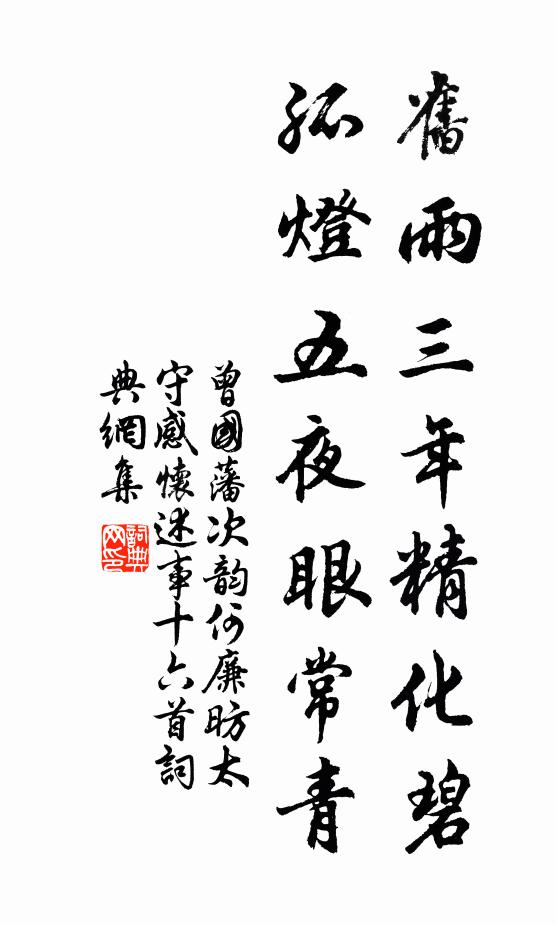 舊雨三年精化碧
孤燈五夜眼常青
曾國藩次韵何廉昉太
守感懷述事十六首詞
典網集
詞典
网印